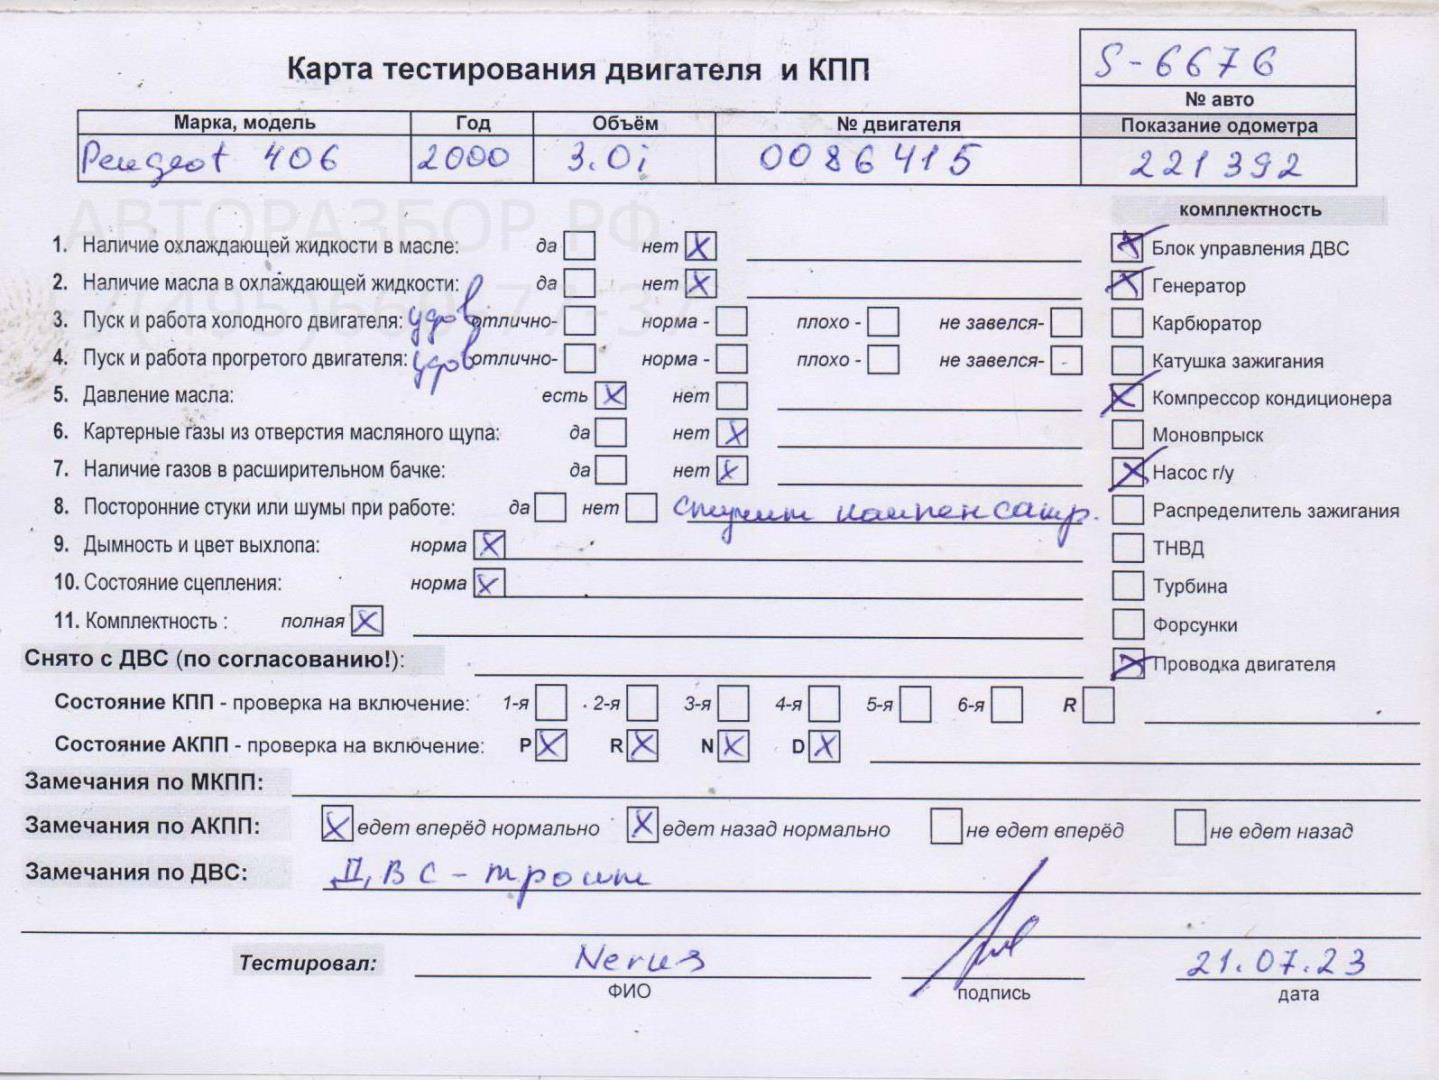 S-6676
Карта тестирования двигателя и КПП
№ авто
Марка, модель Год Объём № двигателя Показание одометра
Peugeot 406 2000 3.0i 0086415 221392
АВТОРАЗБОР.РФ
комплектность
1. Наличие охлаждающей жидкости в масле: да нет X Блок управления ДВС
2. Наличие масла в охлаждающей жидкости: да нет X Генератор
3. Пуск и работа холодного двигателя: удов отлично- норма - плохо - не завелся- Карбюратор
4. Пуск и работа прогретого двигателя: удов отлично- норма - плохо - не завелся- Катушка зажигания
5. Давление масла: есть X нет Компрессор кондиционера
6. Картерные газы из отверстия масляного щупа: да нет X Моновпрыск
7. Наличие газов в расширительном бачке: да нет X Насос г/у
8. Посторонние стуки или шумы при работе: да нет стучит компенсатр. Распределитель зажигания
9. Дымность и цвет выхлопа: норма X ТНВД
10. Состояние сцепления: норма X Турбина
11. Комплектность : полная X Форсунки
Снято с ДВС (по согласованию!): Проводка двигателя
Состояние КПП - проверка на включение: 1-я 2-я 3-я 4-я 5-я 6-я R
Состояние АКПП - проверка на включение: P X R X N X D X
Замечания по МКПП:
Замечания по АКПП: X едет вперёд нормально X едет назад нормально не едет вперёд не едет назад
Замечания по ДВС: ДВС - троит
Тестировал: 21.07.23
ФИО подпись дата